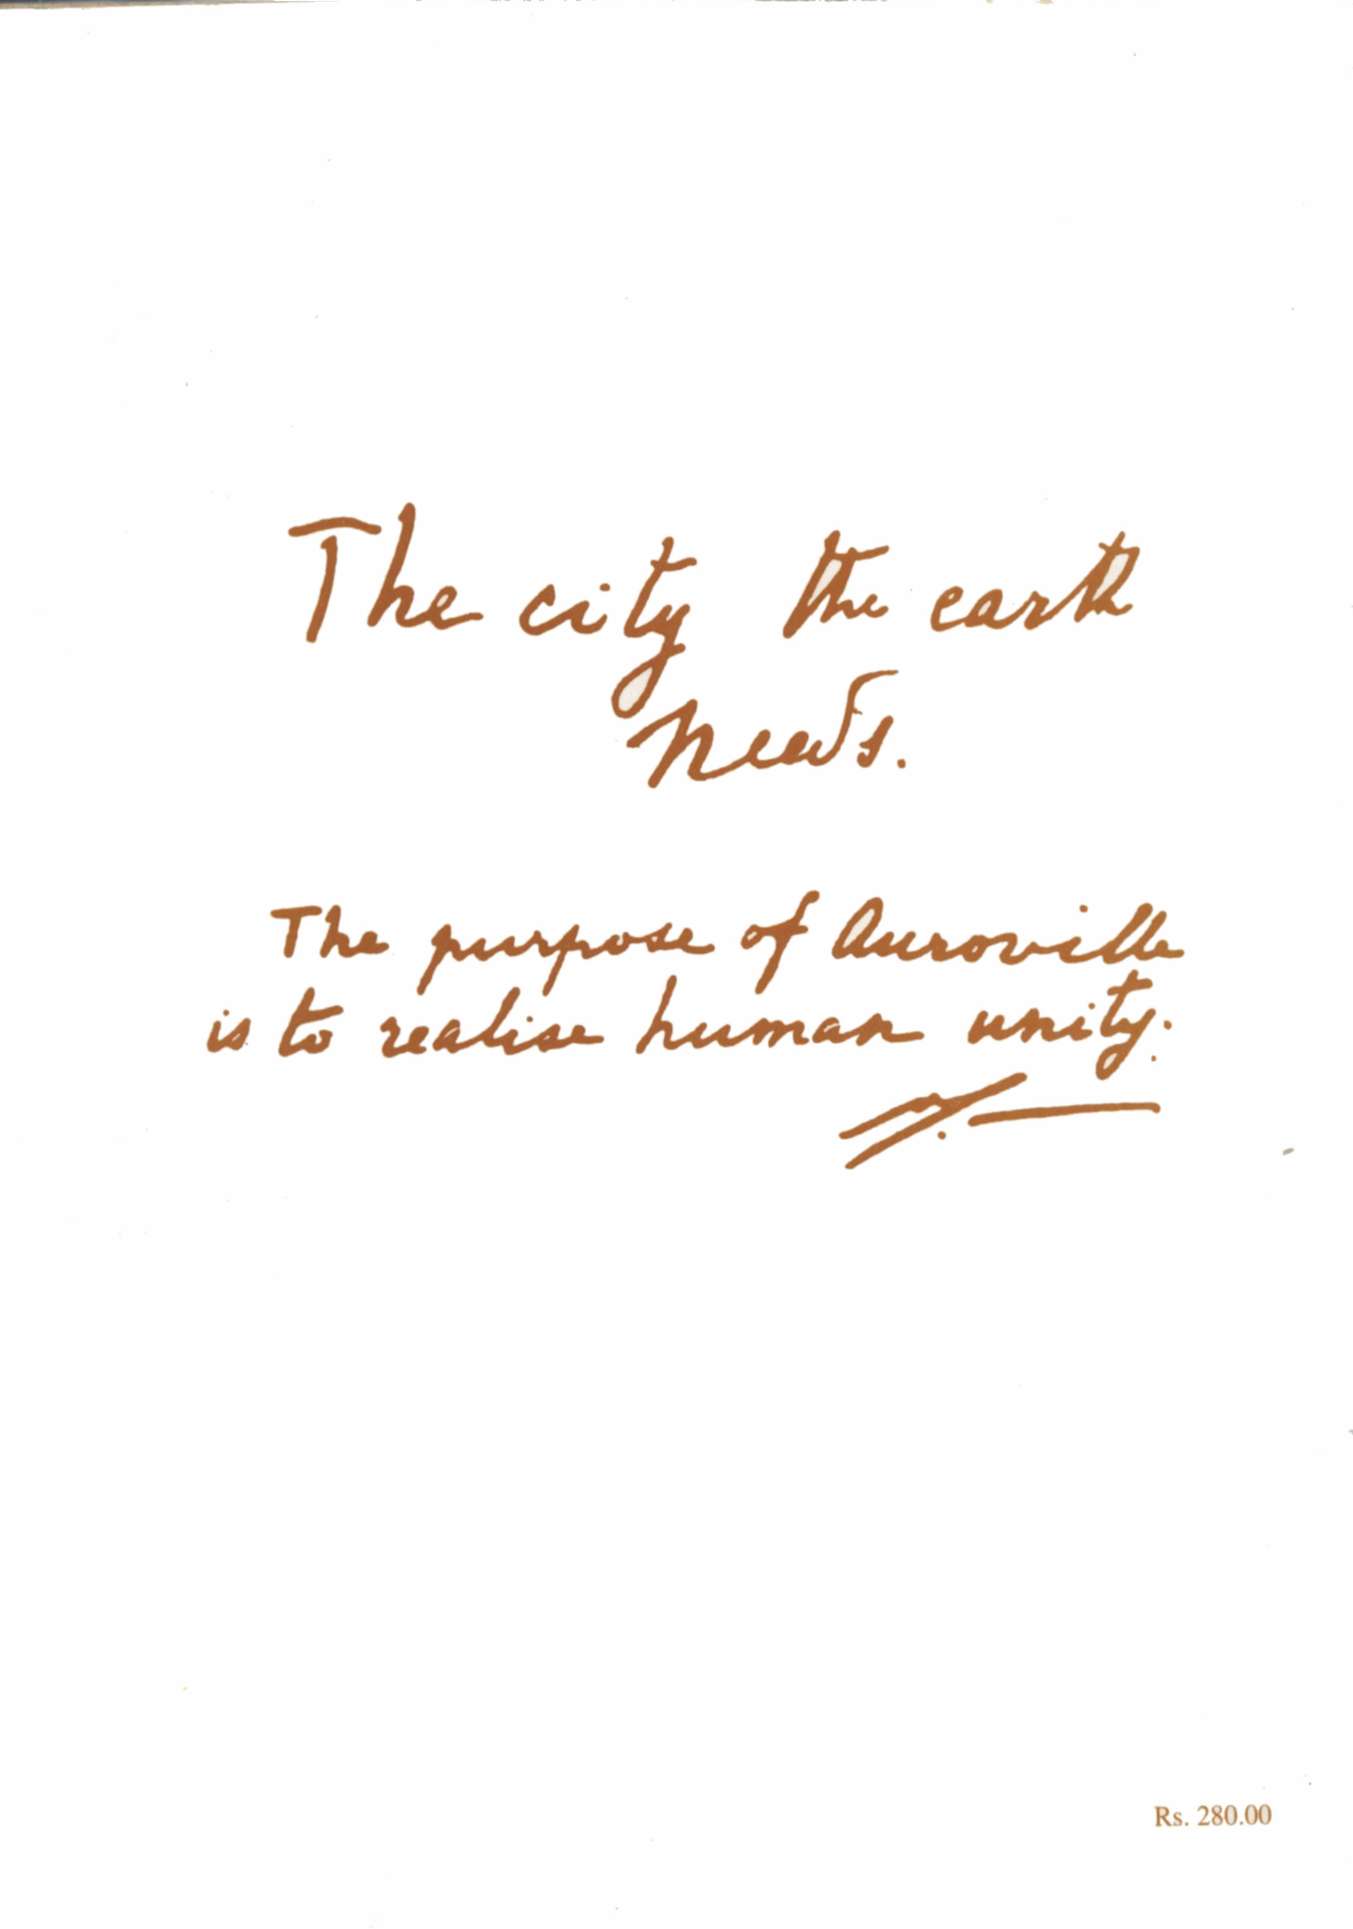 The city the earth
needs.
The purpose of Auroville
is to realise human unity.
Rs. 280.00